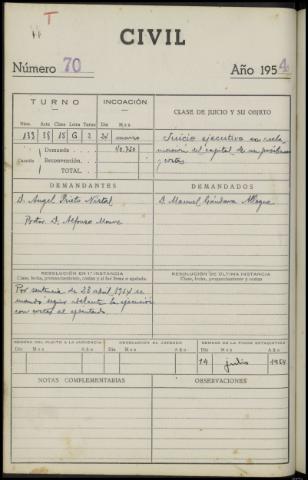 T
CIVIL
Número 70 Año 1954
TURNO INCOACIÓN CLASE DE JUICIO Y SU OBJETO
Núm. Acta Clase Letra Turno Día Mes
133 15 G 2 24 marzo
Juicio ejecutivo en recla-
mación del capital de un préstamo
y costas
Cuantía Demanda
Reconvención
TOTAL
DEMANDANTES DEMANDADOS
D. Angel Prieto
D. Manuel
Procr. D. Alfonso
RESOLUCIÓN EN 1.ª INSTANCIA RESOLUCIÓN DE ÚLTIMA INSTANCIA
Clase, fecha, pronunciamiento, costas y si fué firme o apelada Clase, fecha, pronunciamiento y costas
Por sentencia de 28 abril 1954 se
mandó seguir adelante la ejecución
con costas al ejecutado
SUBIDA DEL PLEITO A LA AUDIENCIA DEVOLUCIÓN AL JUZGADO REMESA DE LA FICHA ESTADÍSTICA
Día Mes Año Día Mes Año Día Mes Año
14 julio 1954
NOTAS COMPLEMENTARIAS OBSERVACIONES